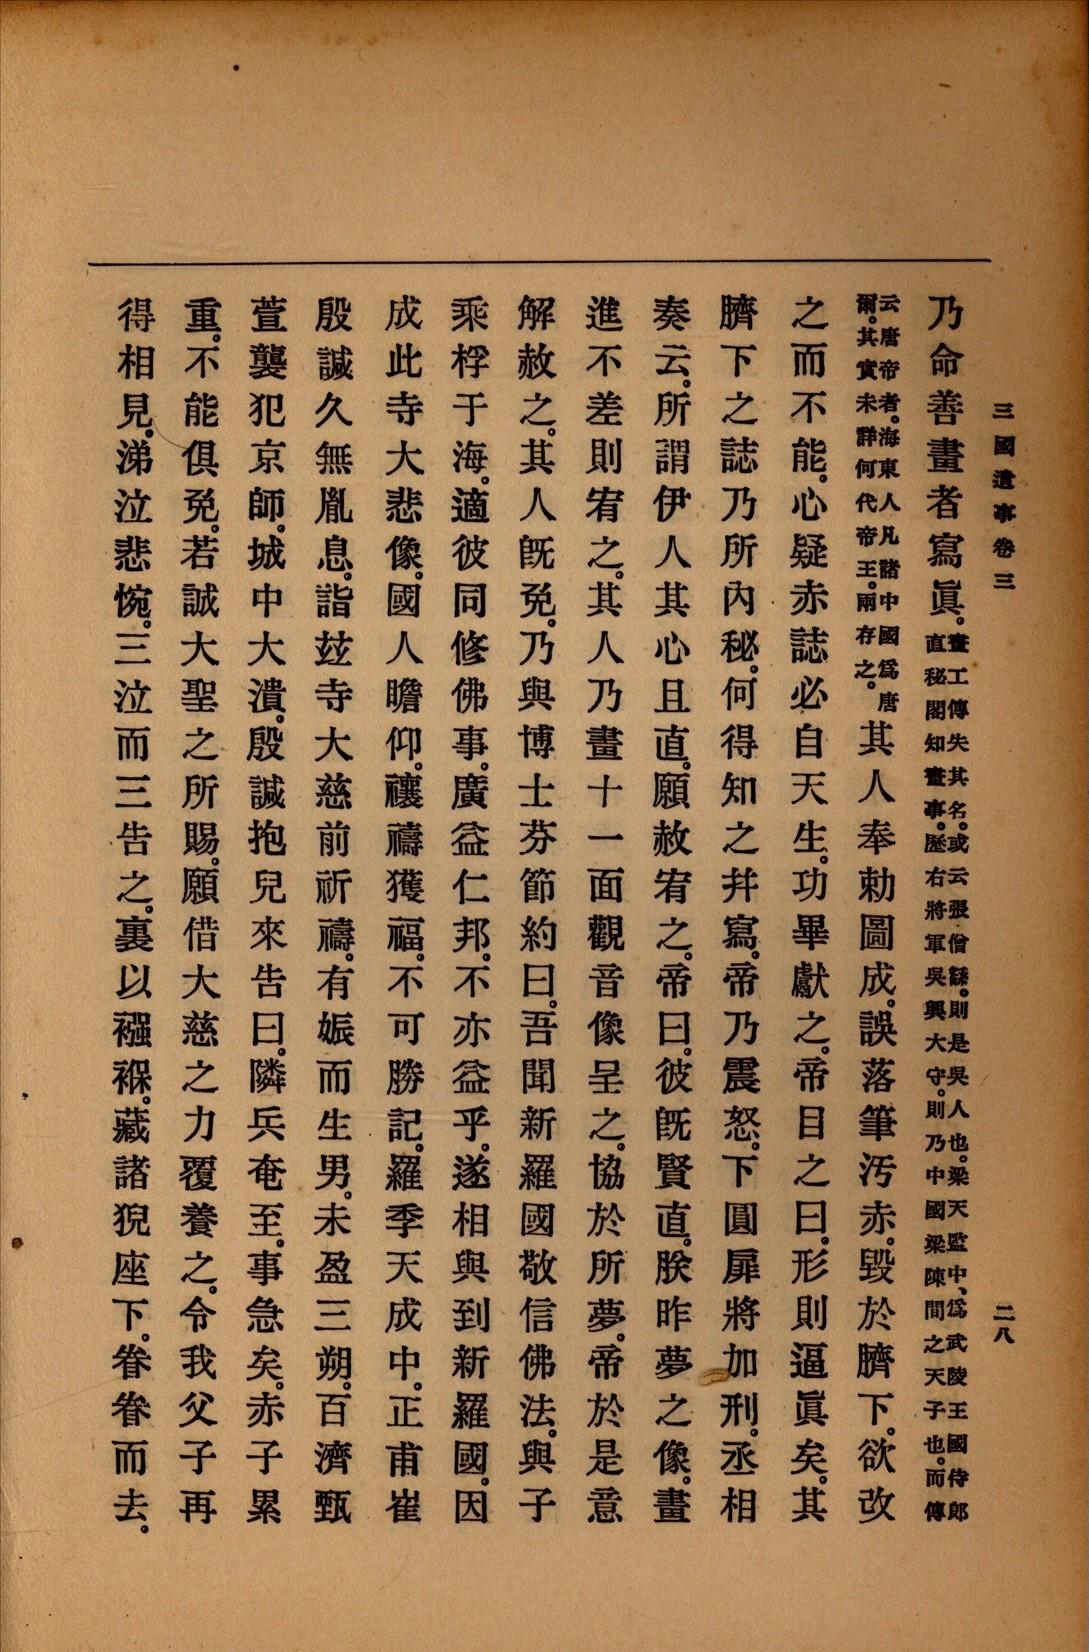 三國遺事卷三
二八
乃命善畫者寫眞。畫工傳失其名。或云張僧繇。則是吳人也。梁天監中、爲武陵王國侍郎
直秘閣知畫事。歷右將軍吳興大守。則乃中國梁陳間之天子也。而傳
云唐帝者。海東人凡諸中國爲唐
爾。其實未詳何代帝王。兩存之。其人奉勅圖成。誤落筆汚赤。毀於臍下。欲改
之而不能。心疑赤誌必自天生。功畢獻之。帝目之曰。形則逼眞矣。其
臍下之誌乃所內秘。何得知之幷寫。帝乃震怒。下圓扉將加刑。丞相
奏云。所謂伊人其心且直。願赦宥之。帝曰。彼旣賢直。朕昨夢之像。畫
進不差則宥之。其人乃畫十一面觀音像呈之。協於所夢。帝於是意
解赦之。其人旣免。乃與博士芬節約曰。吾聞新羅國敬信佛法。與子
乘桴于海。適彼同修佛事。廣益仁邦。不亦益乎。遂相與到新羅國。因
成此寺大悲像。國人瞻仰。禳禱獲福。不可勝記。羅季天成中。正甫崔
殷諴久無胤息。詣玆寺大慈前祈禱。有娠而生男。未盈三朔。百濟甄
萱襲犯京師。城中大潰。殷諴抱兒來告曰。隣兵奄至。事急矣。赤子累
重。不能俱免。若誠大聖之所賜。願借大慈之力覆養之。令我父子再
得相見。涕泣悲惋。三泣而三告之。裏以襁褓。藏諸猊座下。眷眷而去。